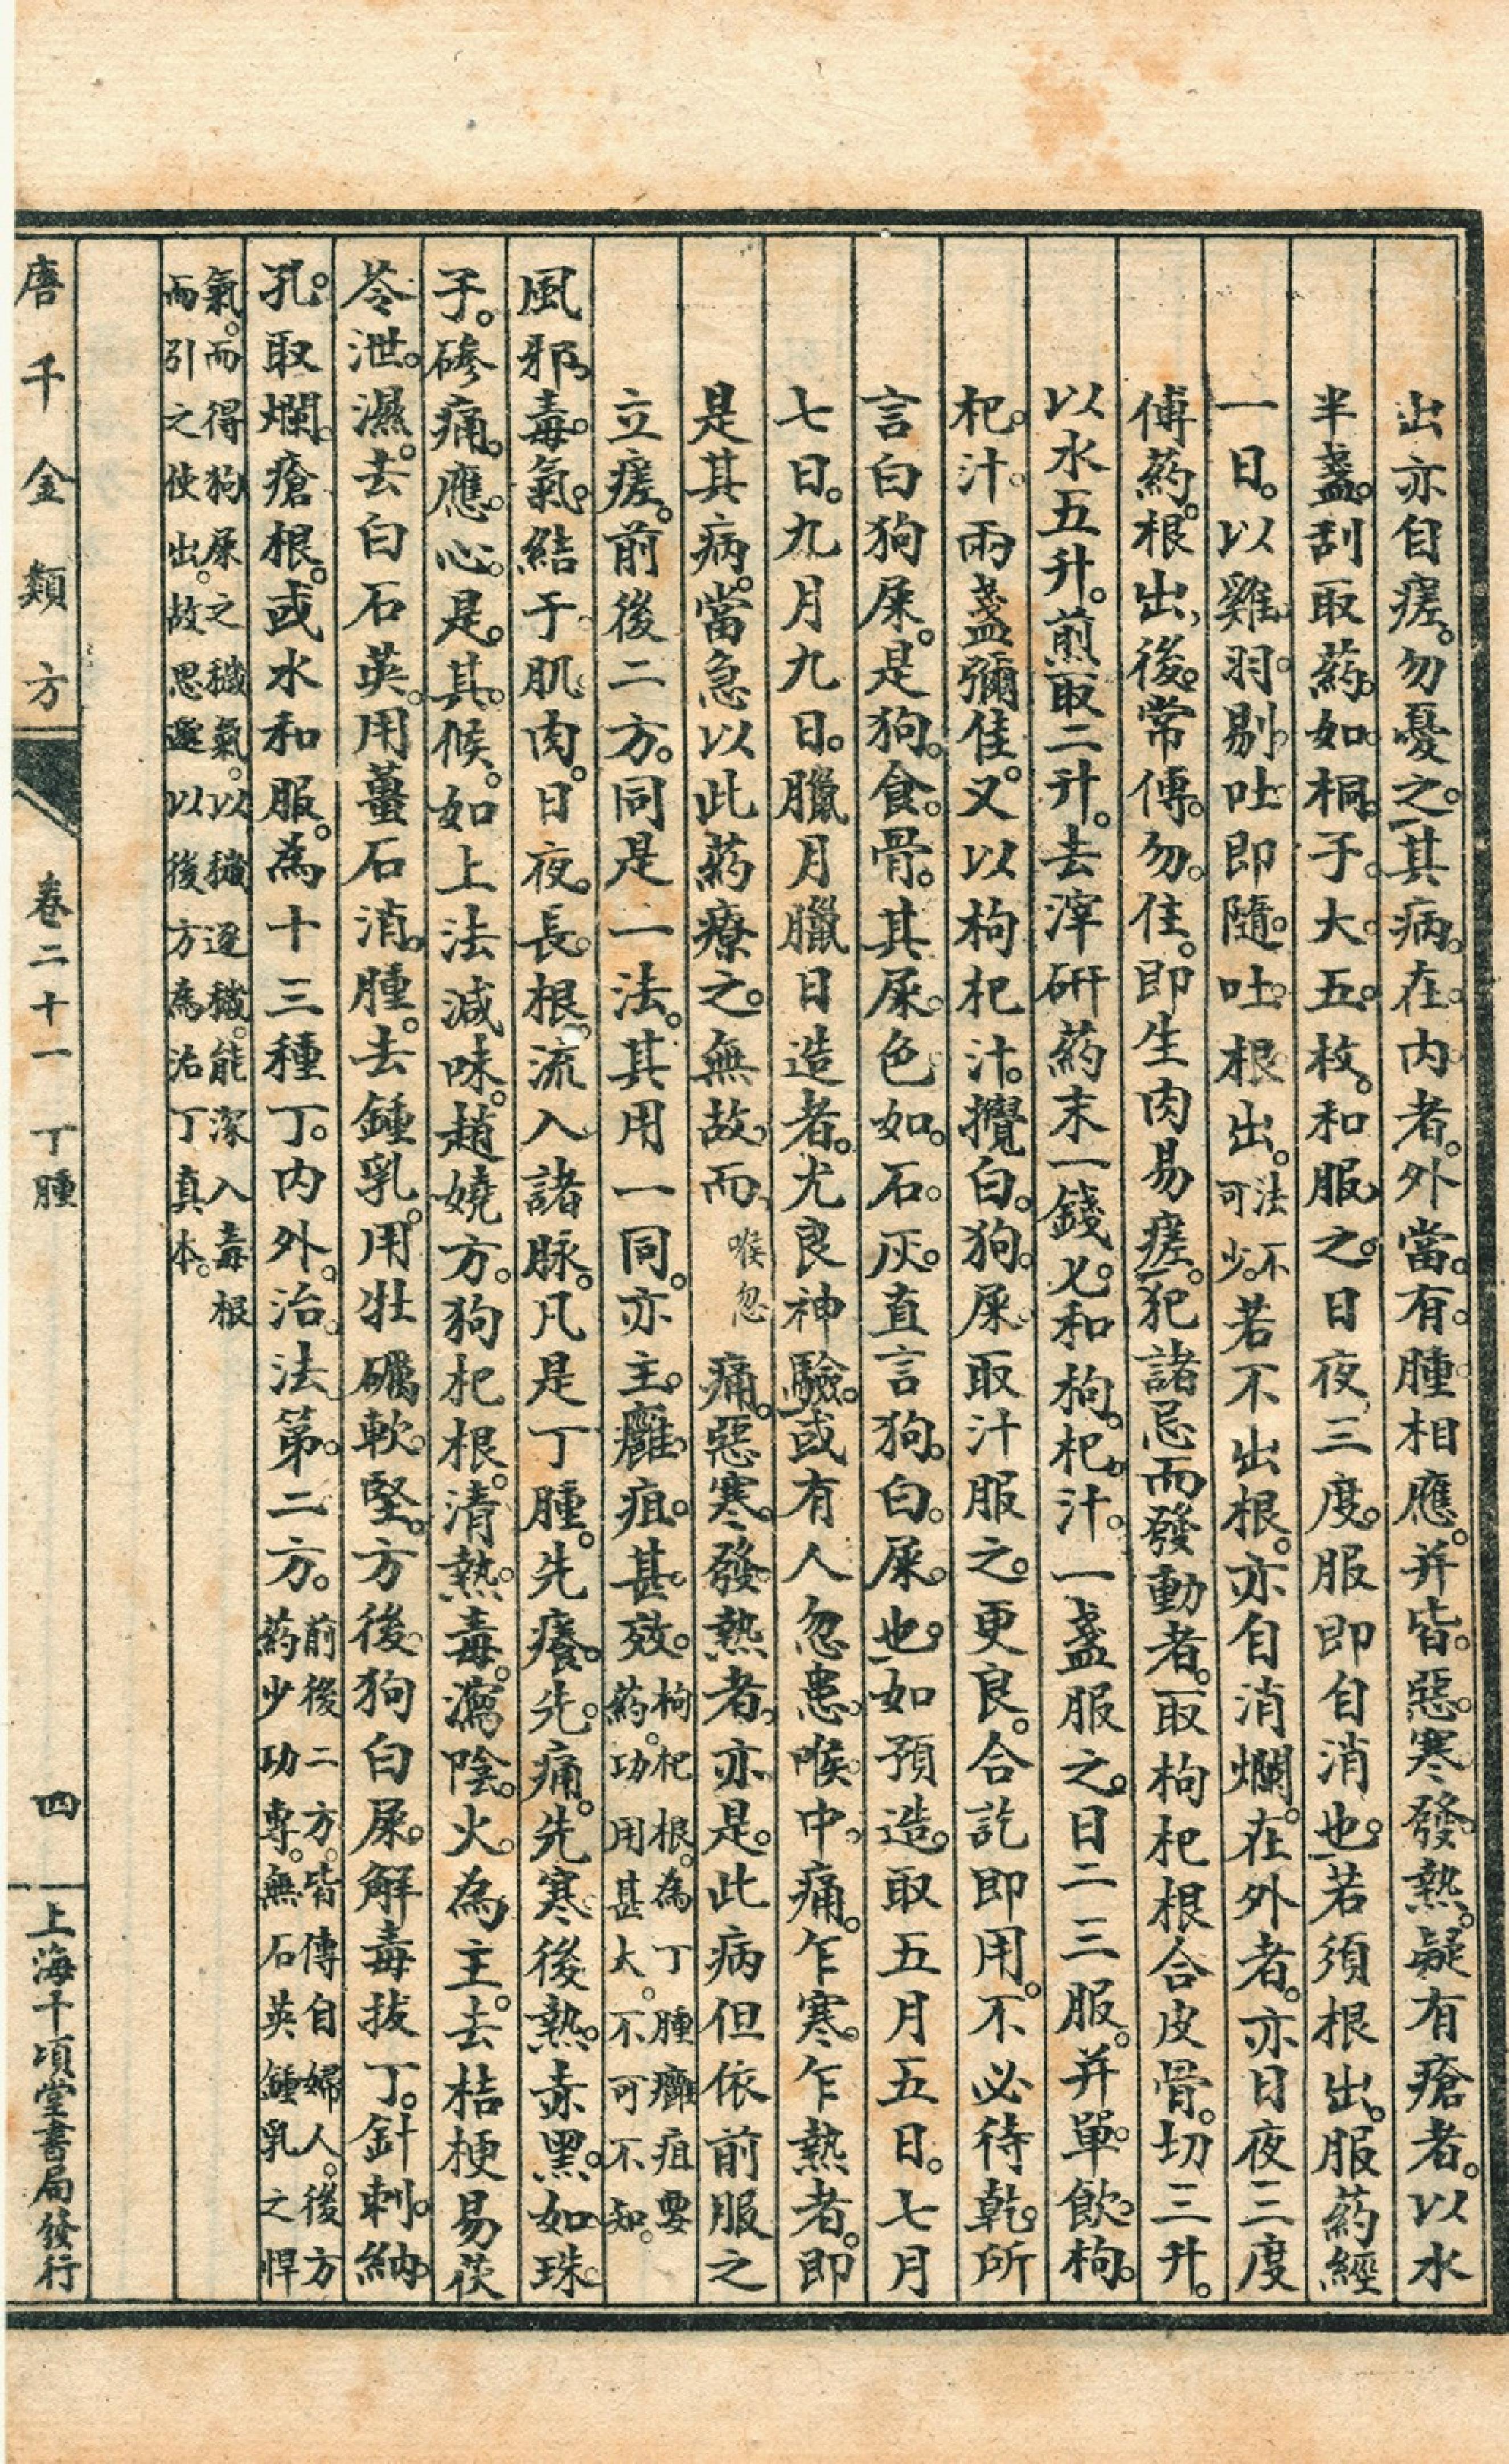 出亦自瘥。勿憂之。其病。在。内者。外當。有。腫相應。并皆。惡。寒發熱。疑有瘡者。以水
半盞。刮取藥。如桐。子。大。五。枚。和服之。日夜三度。服即自消也。若須根出。服藥經
一日。以雞羽。剔吐即隨。吐根出。法不可少。若不出根。亦自消爛。在外者。亦日夜三度
傅藥。根出後。常傅。勿。住。即生肉易瘥。犯諸忌而發動者。取枸杞根合皮骨。切三升。
以水五升。煎取二升。去滓研藥末一錢匕。和枸。杞汁。一盞服之。日二三服。并單。飲枸。
杞。汁兩盞彌佳。又以枸杞汁。攪白。狗。屎。取汁服之。更良。合訖即用。不必待乾。所
言白狗屎。是狗。食。骨。其屎。色如。石。灰。直言狗。白。屎。也。如預造。取五月五日。七月
七日。九月九日。臘月臘日造者。尤良神驗。或有人忽患。喉。中痛。乍寒。乍熱者。即
是其病。當急以此藥療之。無故而喉忽痛。惡寒。發熱者。亦是。此病但依前服之
立瘥。前後二方。同是一法。其用一同。亦主。癰疽。甚效。枸杞根。為丁腫癰疽要藥。功用甚大。不可不知。
風邪毒。氣。結于肌肉。日夜。長。根流入諸脉。凡是丁腫。先癢。先。痛。先寒後熱。赤黑。如珠。
子。磣痛。應。心。是。其。候。如上法減味。趙嬈方。狗杞根。清熱。毒。瀉陰。火。為主。去桔梗易茯
苓泄。濕。去白石英。用薑石消。腫。去鍾乳。用牡礪軟。堅。方後狗白屎。解毒拔丁。針刺。納
孔。取爛。瘡根。或水和服。為十三種丁。内外。治。法第二方。前後二方。皆傳自婦人。後方藥少功專。無石英鍾乳之悍
氣。而得狗屎之穢氣。以穢逐穢。能深入毒根而引之使出。故思邈以後方為治丁真本。
唐千金類方
卷二十一 丁腫
四
上海千頃堂書局發行